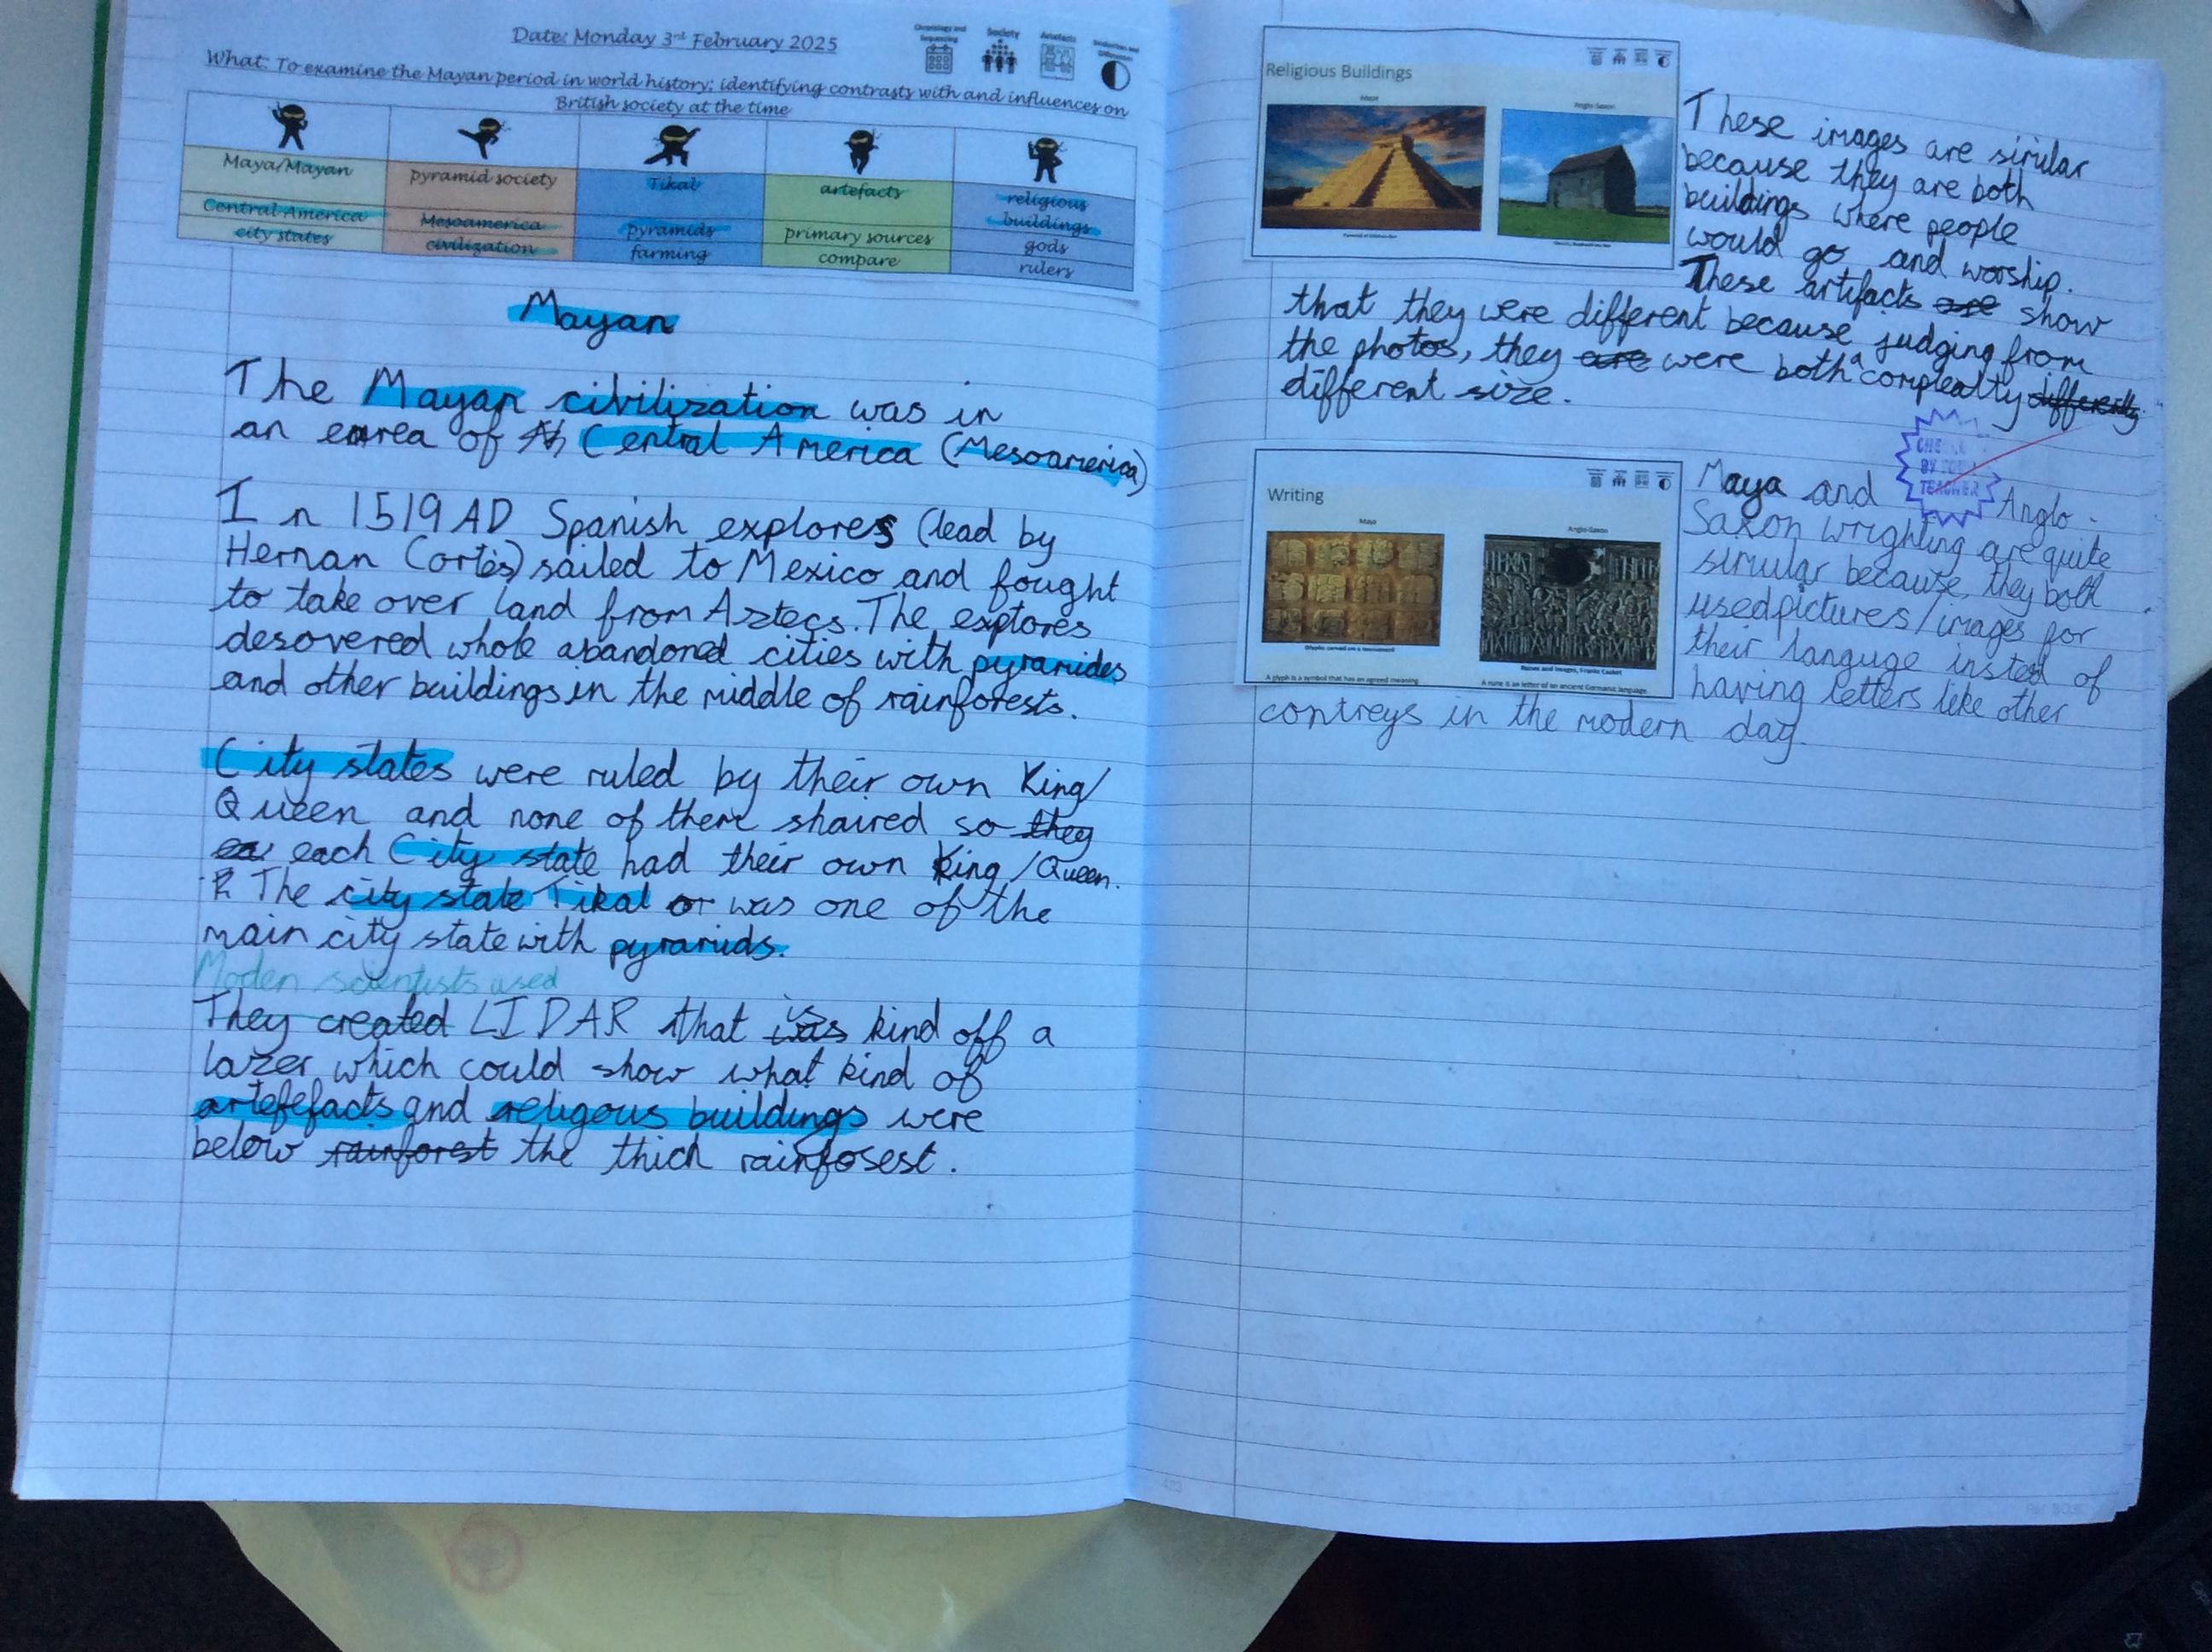 Date: Monday 3rd February 2025
Chronology and Sequencing
Society
Artefacts
What: To examine the Mayan period in world history; identifying contrasts with and influences on
British society at the time
Maya/Mayan
pyramid society
Tikal
artefacts
religious buildings
Central America
Mesoamerica
pyramids
primary sources
gods
city states
civilization
farming
compare
rulers
Mayan
The Mayan civilization was in
an earea of Central America (Mesoamerica)
In 1519 AD Spanish explores (lead by
Hernan Cortés) sailed to Mexico and fought
to take over land from Aztecs. The explores
desovered whole abandoned cities with pyramides
and other buildings in the middle of rainforests.
City states were ruled by their own King/
Queen and none of there shaired so they
each City state had their own King/Queen.
The city state Tikal or was one of the
main city state with pyramids.
Moden scientists used
They created LIDAR that was is kind off a
lazer which could show what kind of
artefefacts and religous buildings were
below rainforest the thich rainfosest.
Religious Buildings
Maya
Anglo-Saxon
These images are simular
because they are both
buildings where people
would go and worship.
These artifacts are show
that they were different because judging from
the photos, they are were both a completly differently
different size.
CHECKED
BY YOUR
TEACHER
Writing
Maya
Anglo-Saxon
Glyphs carved on a monument
Runes and images, Franks Casket
A glyph is a symbol that has an agreed meaning
A rune is an letter of an ancient Germanic language
Maya and Anglo-
Saxon wrighting are quite
simular because, they both
used pictures/images for
their languge insted of
having letters like other
contreys in the modern day.